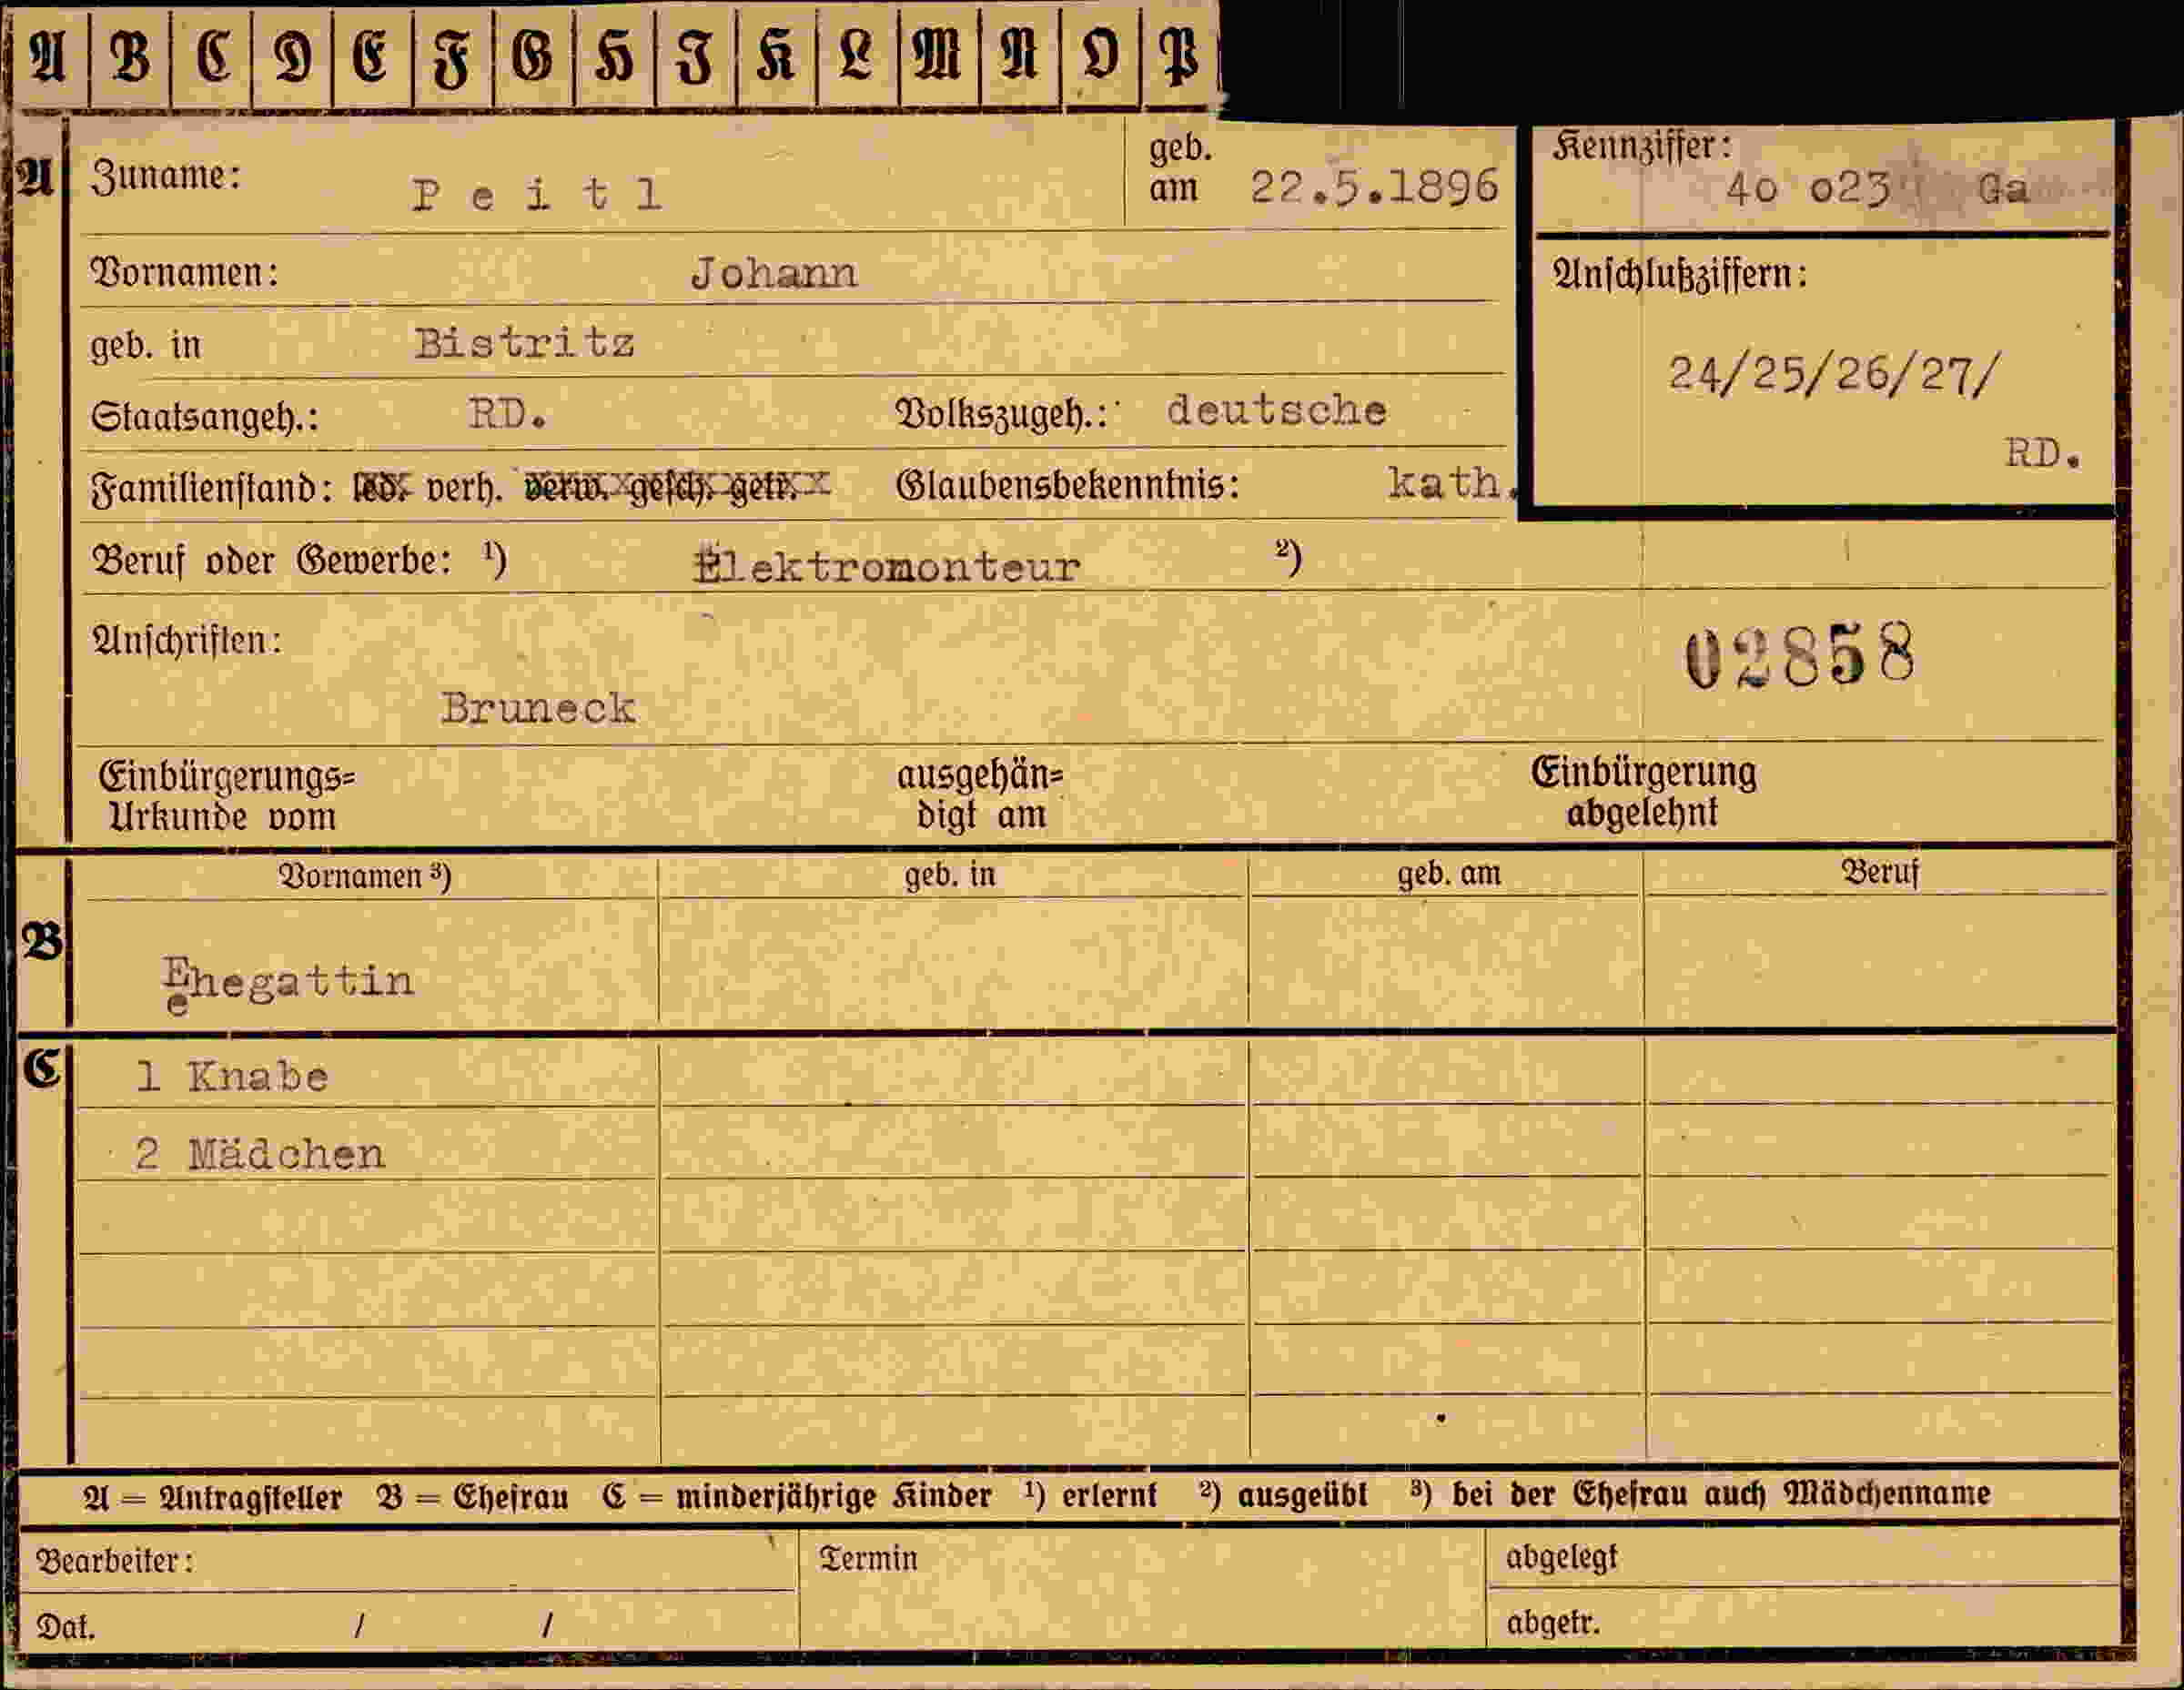 A B C D E F G H I K L M N O P
A Zuname: Peitl geb. am 22.5.1896 Kennziffer: 4o o23 Ga
Vornamen: Johann Anschlußziffern:
geb. in Bistritz 24/25/26/27/
Staatsangeh.: RD. Volkszugeh.: deutsche RD.
Familienstand: led. verh. verw. gesch. getr. Glaubensbekenntnis: kath.
Beruf oder Gewerbe: ¹) Elektromonteur ²)
Anschriften: 02858
Bruneck
Einbürgerungs= ausgehän= Einbürgerung
Urkunde vom digt am abgelehnt
Vornamen ³) geb. in geb. am Beruf
B Ehegattin
C 1 Knabe
2 Mädchen
A = Antragsteller B = Ehefrau C = minderjährige Kinder ¹) erlernt ²) ausgeübt ³) bei der Ehefrau auch Mädchenname
Bearbeiter: Termin abgelegt
Dat. / / abgetr.